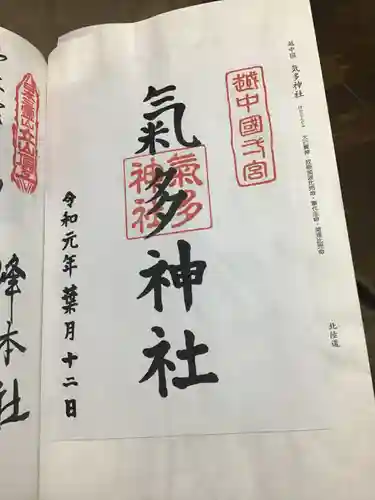 越中国 氣多神社
北陸道
越中國一宮
氣多神社
氣多
神社
令和元年 葉月 十二日
峰本社